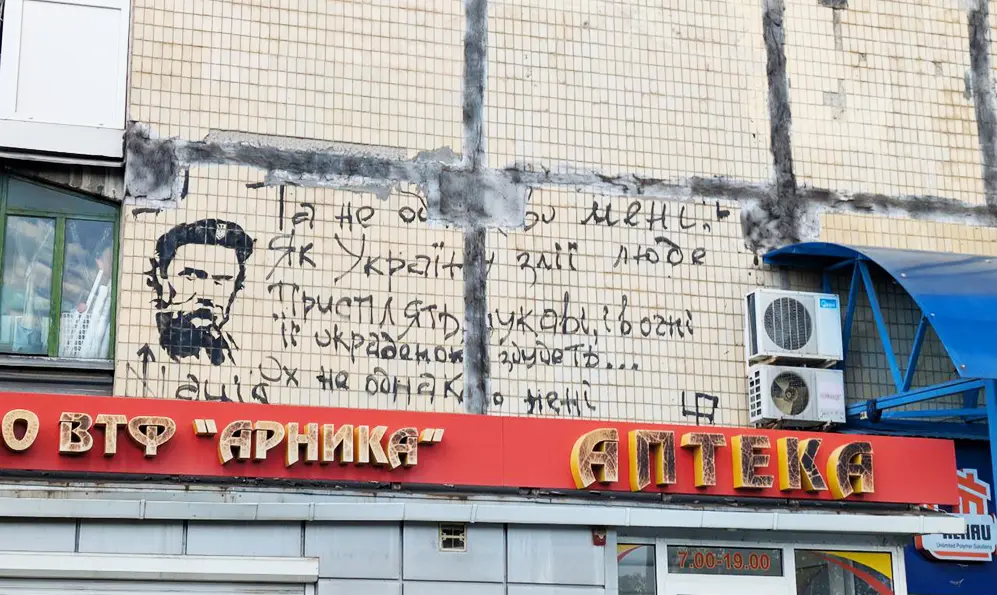 Та не мені,
Як Україну злії люде
Присплять, лукаві, і в огні
Її, окраденую, збудять...
Ох не однаково мені
Нація
О ВТФ "АРНИКА"
АПТЕКА
7.00-19.00
REHAU
Unlimited Polymer Solutions